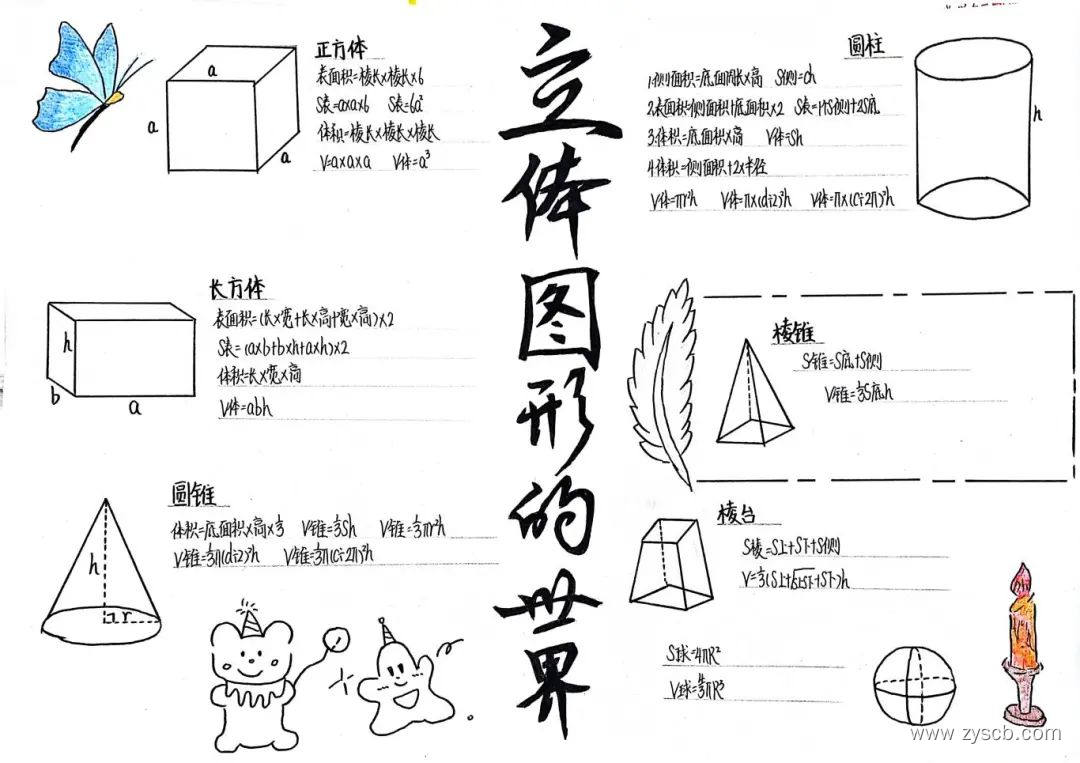 立体图形的世界
正方体
表面积=棱长×棱长×6
S表=a×a×6 S表=6a²
体积=棱长×棱长×棱长
V=a×a×a V体=a³
a
a
a
长方体
表面积=(长×宽+长×高+宽×高)×2
S表=(a×b+b×h+a×h)×2
体积=长×宽×高
V体=abh
h
b
a
圆锥
体积=底面积×高×⅓ V锥=⅓Sh V锥=⅓πr²h
V锥=⅓π(d÷2)²h V锥=⅓π(C÷2π)²h
h
r
圆柱
1.侧面积=底面周长×高 S侧=ch
2.表面积=侧面积+底面积×2
3.体积=底面积×高 V体=Sh
4.体积=侧面积÷2×半径
V体=πr²h V体=π×(d÷2)²h V体=π×(C÷2π)²h
h
棱锥
S锥=S底+S侧
V锥=⅓S底h
棱台
S棱=S上+S下+S侧
V=⅓(S上+√S上S下+S下)h
S球=4πR²
V球=4/3πR³
www.zyscb.com